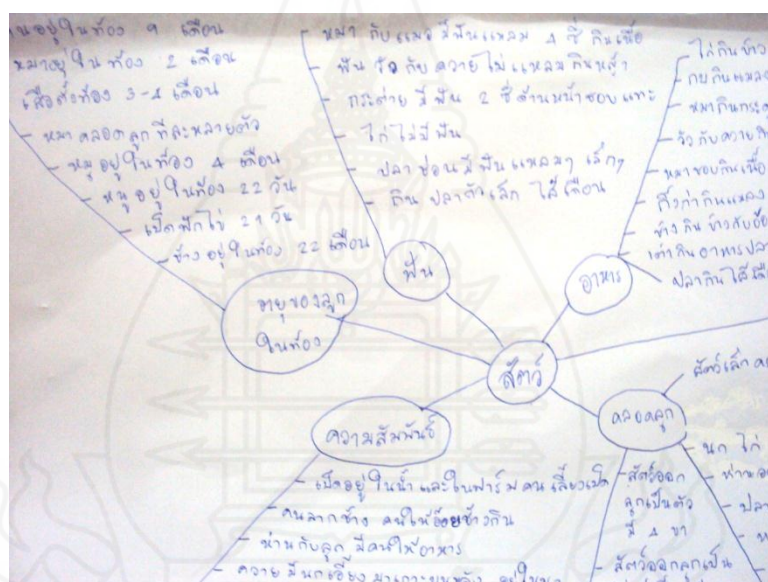 นอยู่ในท้อง 9 เดือน
หมาอยู่ในท้อง 2 เดือน
เสือตั้งท้อง 3-4 เดือน
- หมาคลอดลูกทีละหลายตัว
- หมูอยู่ในท้อง 4 เดือน
- หนูอยู่ในท้อง 22 วัน
- เป็ดฟักไข่ 21 วัน
- ช้างอยู่ในท้อง 22 เดือน
อายุของลูก
ในท้อง
- หมา กับแมว มีฟันแหลม 4 ซี่ กินเนื้อ
- ฟัน วัว กับ ควาย ไม่แหลม กินหญ้า
- กระต่าย มีฟัน 2 ซี่ด้านหน้าชอบแทะ
- ไก่ไม่มีฟัน
- ปลาช่อนมีฟันแหลมๆ เล็กๆ
- กิน ปลาตัวเล็ก ไส้เดือน
ฟัน
ไก่กินข้าว
- กบกินแมลง
- หมากินกระดู
- วัวกับควายกิน
- หมาชอบกินเนื้อ
- กิ้งก่ากินแมลง
- ช้างกินข้าวกับอ้อ
เต่ากินอาหารปลา
ปลากินไส้เดือ
อาหาร
สัตว์
ความสัมพันธ์
- เป็ดอยู่ในน้ำและในฟาร์มคนเลี้ยงเป็ด
- คนลากช้าง คนให้อ้อยช้างกิน
- ห่านกับลูก มีคนให้อาหาร
- ควาย มีนกเอี้ยงมาเกาะบนหลัง
คลอดลูก
สัตว์เล็ก
- นก ไก่
- ห่าน
- ปลา
- สัตว์ออก
ลูกเป็นตัว
มี 4 ขา
- สัตว์ออกลูกเป็น